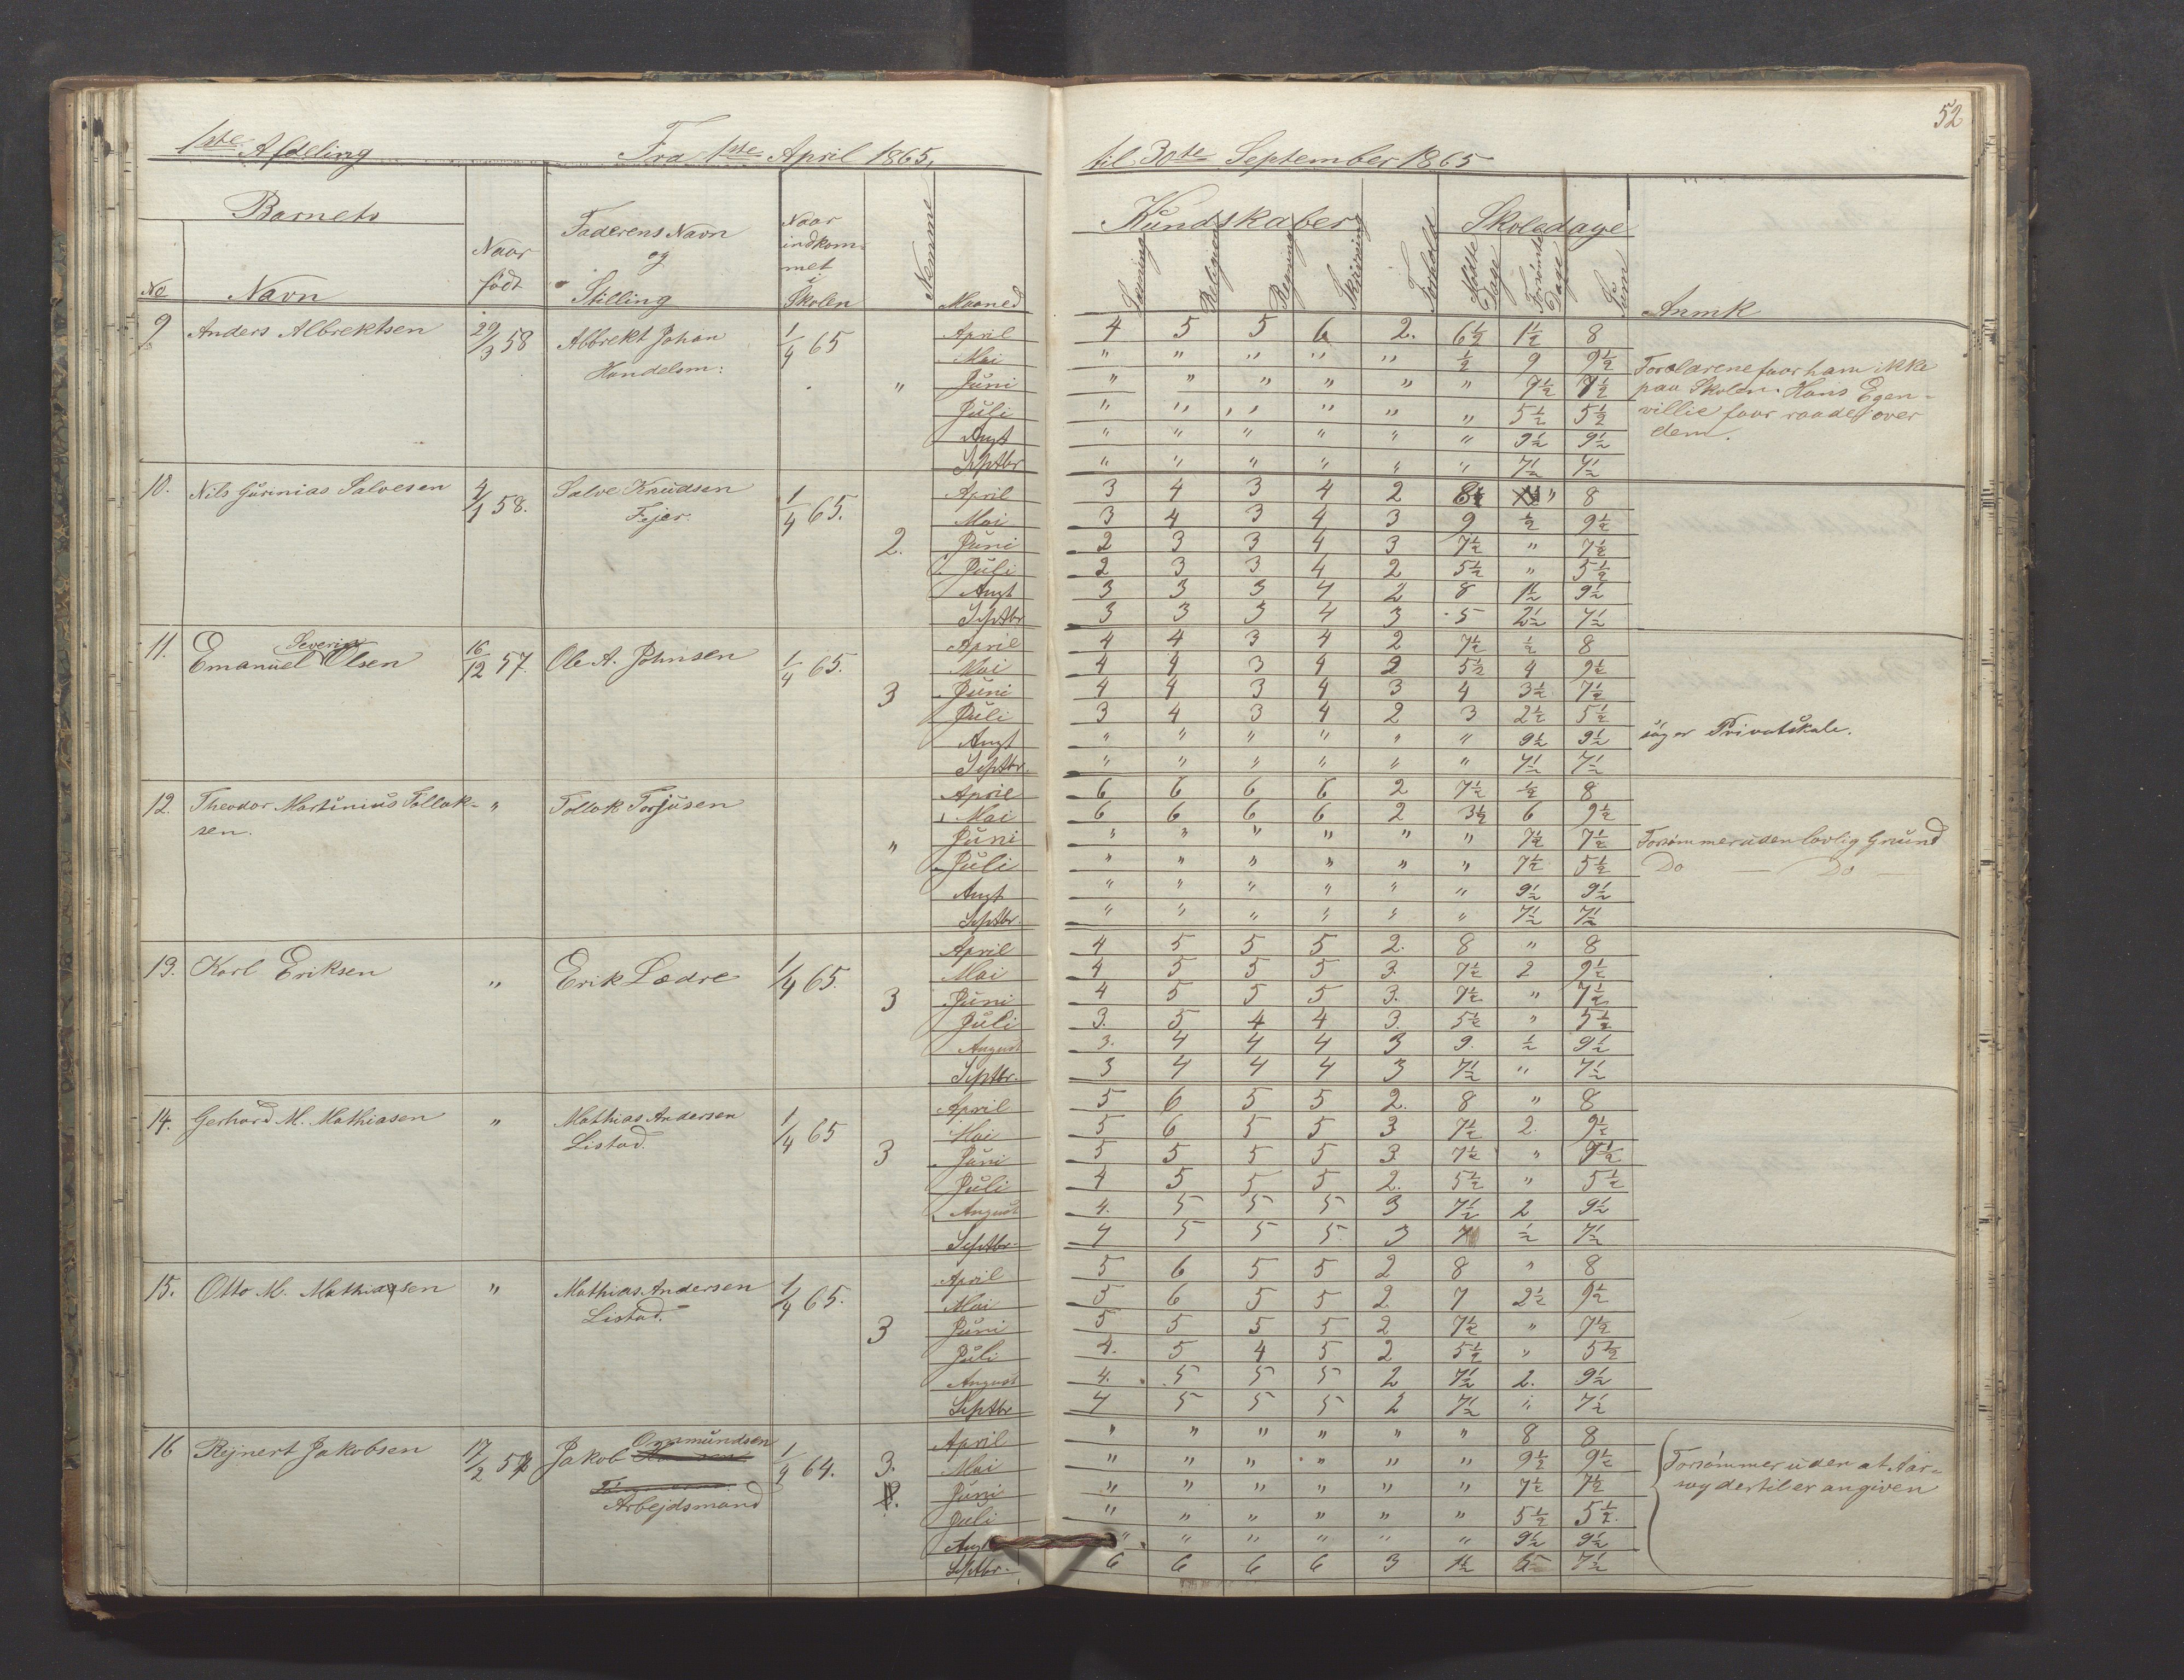 52
1ste Afdeling Fra 1ste April 1865, til 30te September 1865
Barnets Naar født Faderens Navn og Stilling Naar indkommet i Skolen Nemme Maaned Kundskaber Forhold Skoledage Anmk
No Navn Læsning Religion Regning Skrivning Mødte Dage Forsømte Dage Sum
9 Anders Albrektsen 29/3 58 Albrekt Johan Handelsm: 1/4 65 "
April 4 5 5 6 2. 6½ 1½ 8
Mai " " " " " ½ 9 9½
Juni " " " " " " 7½ 7½
Juli " " " " " " 5½ 5½
Augt " " " " " " 9½ 9½
Septbr " " " " " " 7½ 7½
Forældrene faar ham ikke
paa Skolen. Hans Egen-
villie faar raade over
dem.
10. Nils Gürinias Salvesen 4/1 58. Salve Knudsen Fejer. 1/4 65. 2.
April 3 4 3 4 2 8 " 8
Mai 3 4 3 4 3 9 ½ 9½
Juni 2 3 3 4 3 7½ " 7½
Juli 2 3 3 4 2 5½ " 5½
Augt 3 3 3 4 2 8 1½ 9½
Septbr 3 3 3 4 3 5 2½ 7½
11. Emanuel Severin Olsen 16/12 57. Ole A. Johnsen 1/4 65. 3
April 4 4 3 4 2 7½ ½ 8
Mai 4 4 3 4 2 5½ 4 9½
Juni 4 4 3 4 3 4 3½ 7½
Juli 3 4 3 4 2 3 2½ 5½
Augt " " " " " " 9½ 9½ søger Privatskole.
Septbr. " " " " " " 7½ 7½
12. Theodor Martinius Tollak-
sen. " Tollak Torjusen "
April 6 6 6 6 2 7½ ½ 8
Mai 6 6 6 6 2 3½ 6 9½
Juni " " " " " " 7½ 7½ Forsømmer uden lovlig Grund
Juli " " " " " " 7½ 5½ Do — Do —
Augt " " " " " " 9½ 9½
Septbr. " " " " " " 7½ 7½
13. Karl Eriksen " Erik Lædre 1/4 65. 3
April 4 5 5 5 2. 8 " 8
Mai 4 5 5 5 3. 7½ 2 9½
Juni 4 5 5 5 3. 7½ " 7½
Juli 3. 5 4 4 3. 5½ " 5½
August 3. 4 4 4 3 9. ½ 9½
Septbr. 3 4 4 4 3 7½ " 7½
14. Gerhard M. Mathiasen " Mathias Andersen Listad. 1/4 65 3
April 5 6 5 5 2. 8 " 8
Mai 5 6 5 5 3 7½ 2. 9½
Juni 5 5 5 5 3. 7½ " 7½
Juli 4 5 5 5 2. 5½ " 5½
August 4. 5 5 5 3 7½ 2 9½
Septbr. 4 5 5 5. 3 7 ½ 7½
15. Otto M. Mathiasen " Mathias Andersen Listad. 1/4 65. 3
April 5 6 5 5 2 8 " 8
Mai 5 6 5 5 2 7 2½ 9½
Juni 5 5 5 5 2 7½ " 7½
Juli 4. 5 4 5 2 5½ " 5½
August 4. 5 5 5 2 7½ 2. 9½
Septbr 4 5 5 5 2 7½ " 7½
16 Rejnert Jakobsen 17/2 57 Jakob Ommundsen Arbejdsmand 1/4 64. 3.
April " " " " " " 8 8
Mai " " " " " " 9½ 9½
Juni " " " " " " 7½ 7½
Juli " " " " " " 5½ 5½
Augt " " " " " " 9½ 9½
Septbr. 6 6 6 6 3 1½ 6 7½
Forsømmer uden at Aar-
sag dertil er angiven